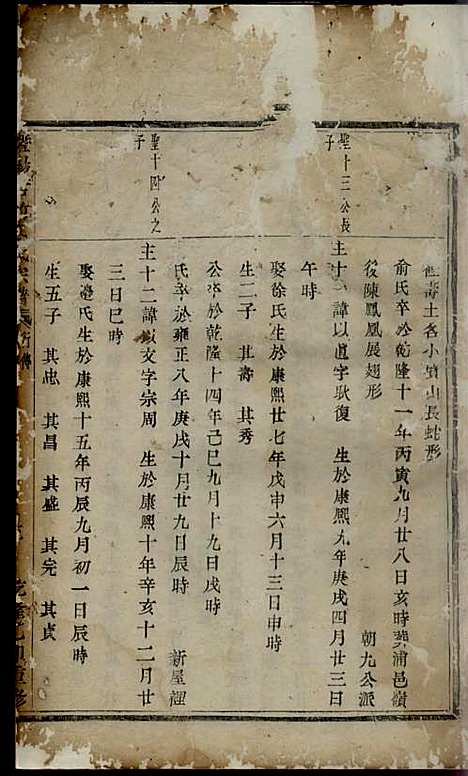 土名小寳山長蛇形
俞氏卒於乾隆十一年丙寅九月廿八日亥時葬浦邑嶺
後陳鳳凰展翅形
朝九公派
聖十三公長子
主十諱以道字耿復 生於康熙九年庚戌四月廿三日
午時
娶徐氏生於康熙廿七年戊申六月十三日申時
生二子 其壽 其秀
公卒於乾隆十四年己巳九月十九日戌時
氏卒於雍正八年庚戌十月廿九日辰時
新屋裡
聖十四公之子
主十二諱以文字宗周 生於康熙十年辛亥十二月廿
三日巳時
娶邊氏生於康熙十五年丙辰九月初一日辰時
生五子 其忠 其昌 其盛 其完 其貞